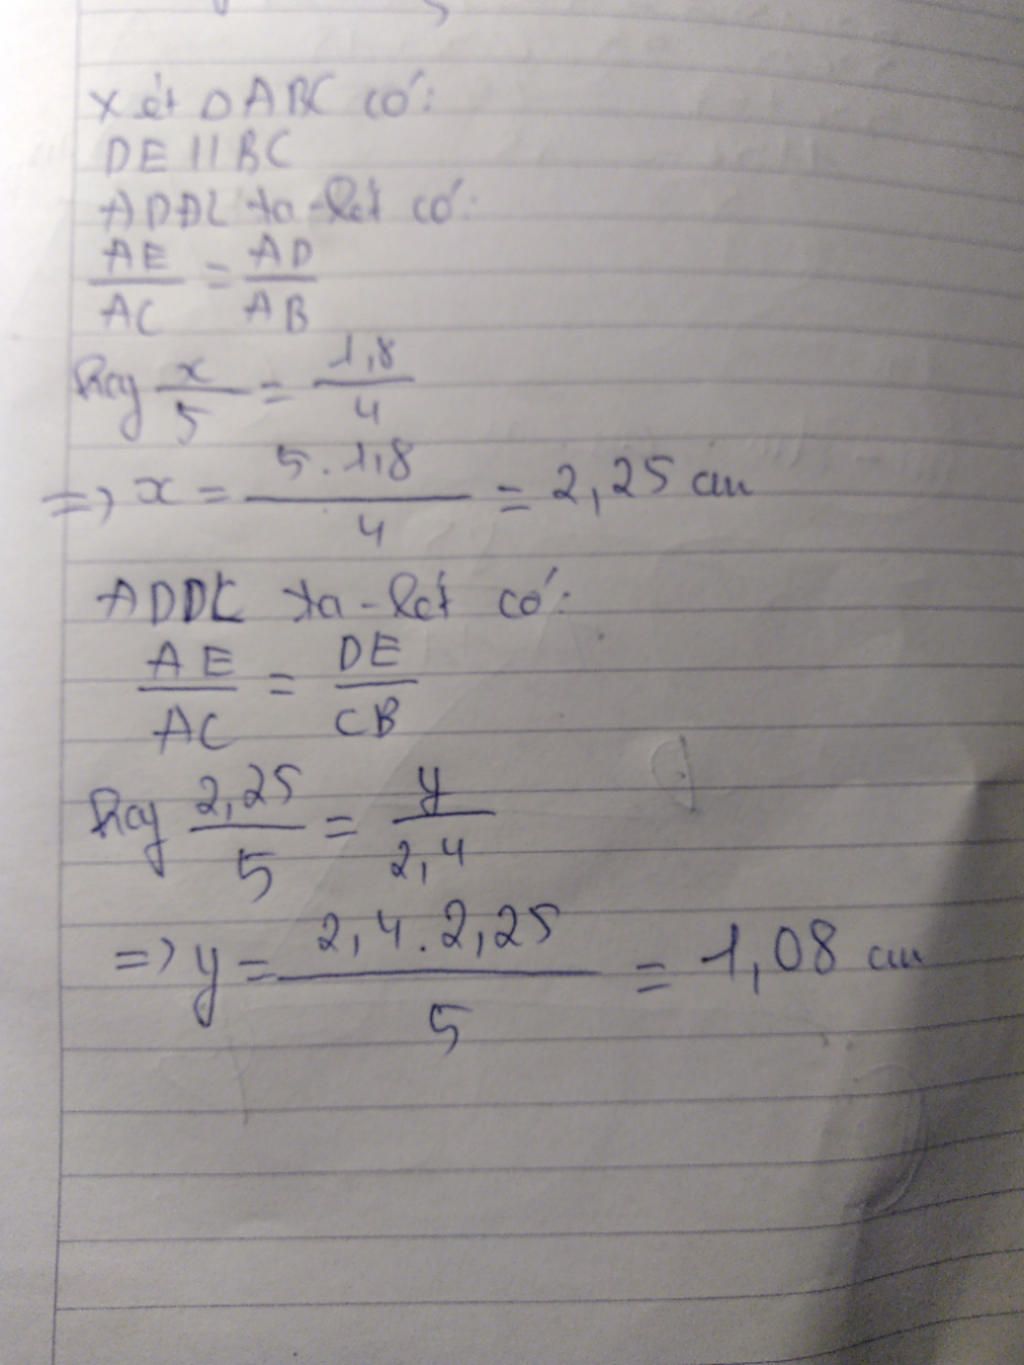 Xét ΔABC có:
DE // BC
ADĐL ta-lét có:
AE/AC = AD/AB
Hay x/5 = 1,8/4
=> x = 5.1,8/4 = 2,25 cm
ADĐL ta-lét có:
AE/AC = DE/CB
Hay 2,25/5 = y/2,4
=> y = 2,4.2,25/5 = 1,08 cm